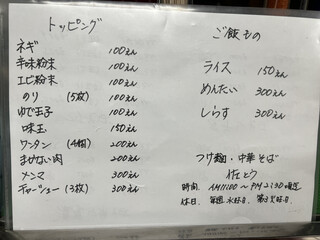 トッピング
ネギ 100えん
辛味粉末 100えん
エビ粉末 100えん
のり (5枚) 100えん
ゆで玉子 100えん
味玉 150えん
ワンタン (4個) 200えん
まぜない肉 200えん
メンマ 300えん
チャーシュー (3枚) 300えん
ご飯もの
ライス 150えん
めんたい 300えん
しらす 300えん
つけ麺・中華そば
佐とう
時間 AM11:00 〜 PM2:30
休日 毎週水曜日、第3火曜日